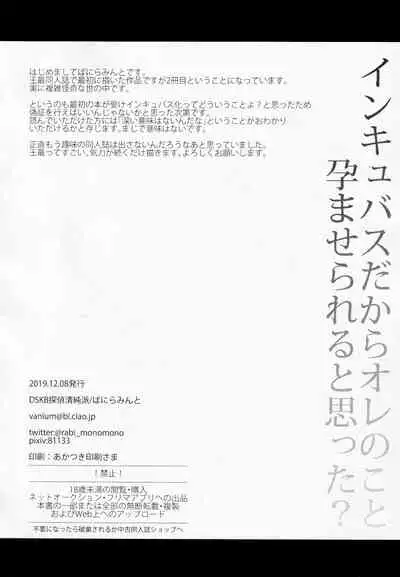 インキュバスだからオレのこと
孕ませられると思った？
はじめましてばにらみんとです。
王最同人誌で最初に描いた作品ですが2冊目ということになっています。
実に複雑怪奇な世の中です。
というのも最初の本が受けインキュバス化ってどういうことよ？と思ったため
偽証を行えばいいんじゃないかと思った次第です。
読んでいただけた方には「深い意味はないんだな」ということがおわかり
いただけるかと存じます。まじで意味はないです。
正直もう趣味の同人誌は出さないんだろうなあと思っていました。
王最ってすごい。気力が続くだけ描きます。よろしくお願いします。
2019.12.08発行
DSKB探偵清純派/ばにらみんと
vanium@bl.ciao.jp
twitter:@rabi_monomono
pixiv:81133
印刷：あかつき印刷さま
！禁止！
18歳未満の閲覧・購入
ネットオークション・フリマアプリへの出品
本書の一部または全部の無断転載・複製
およびWeb上へのアップロード
不要になったら破棄されるか中古同人誌ショップへ